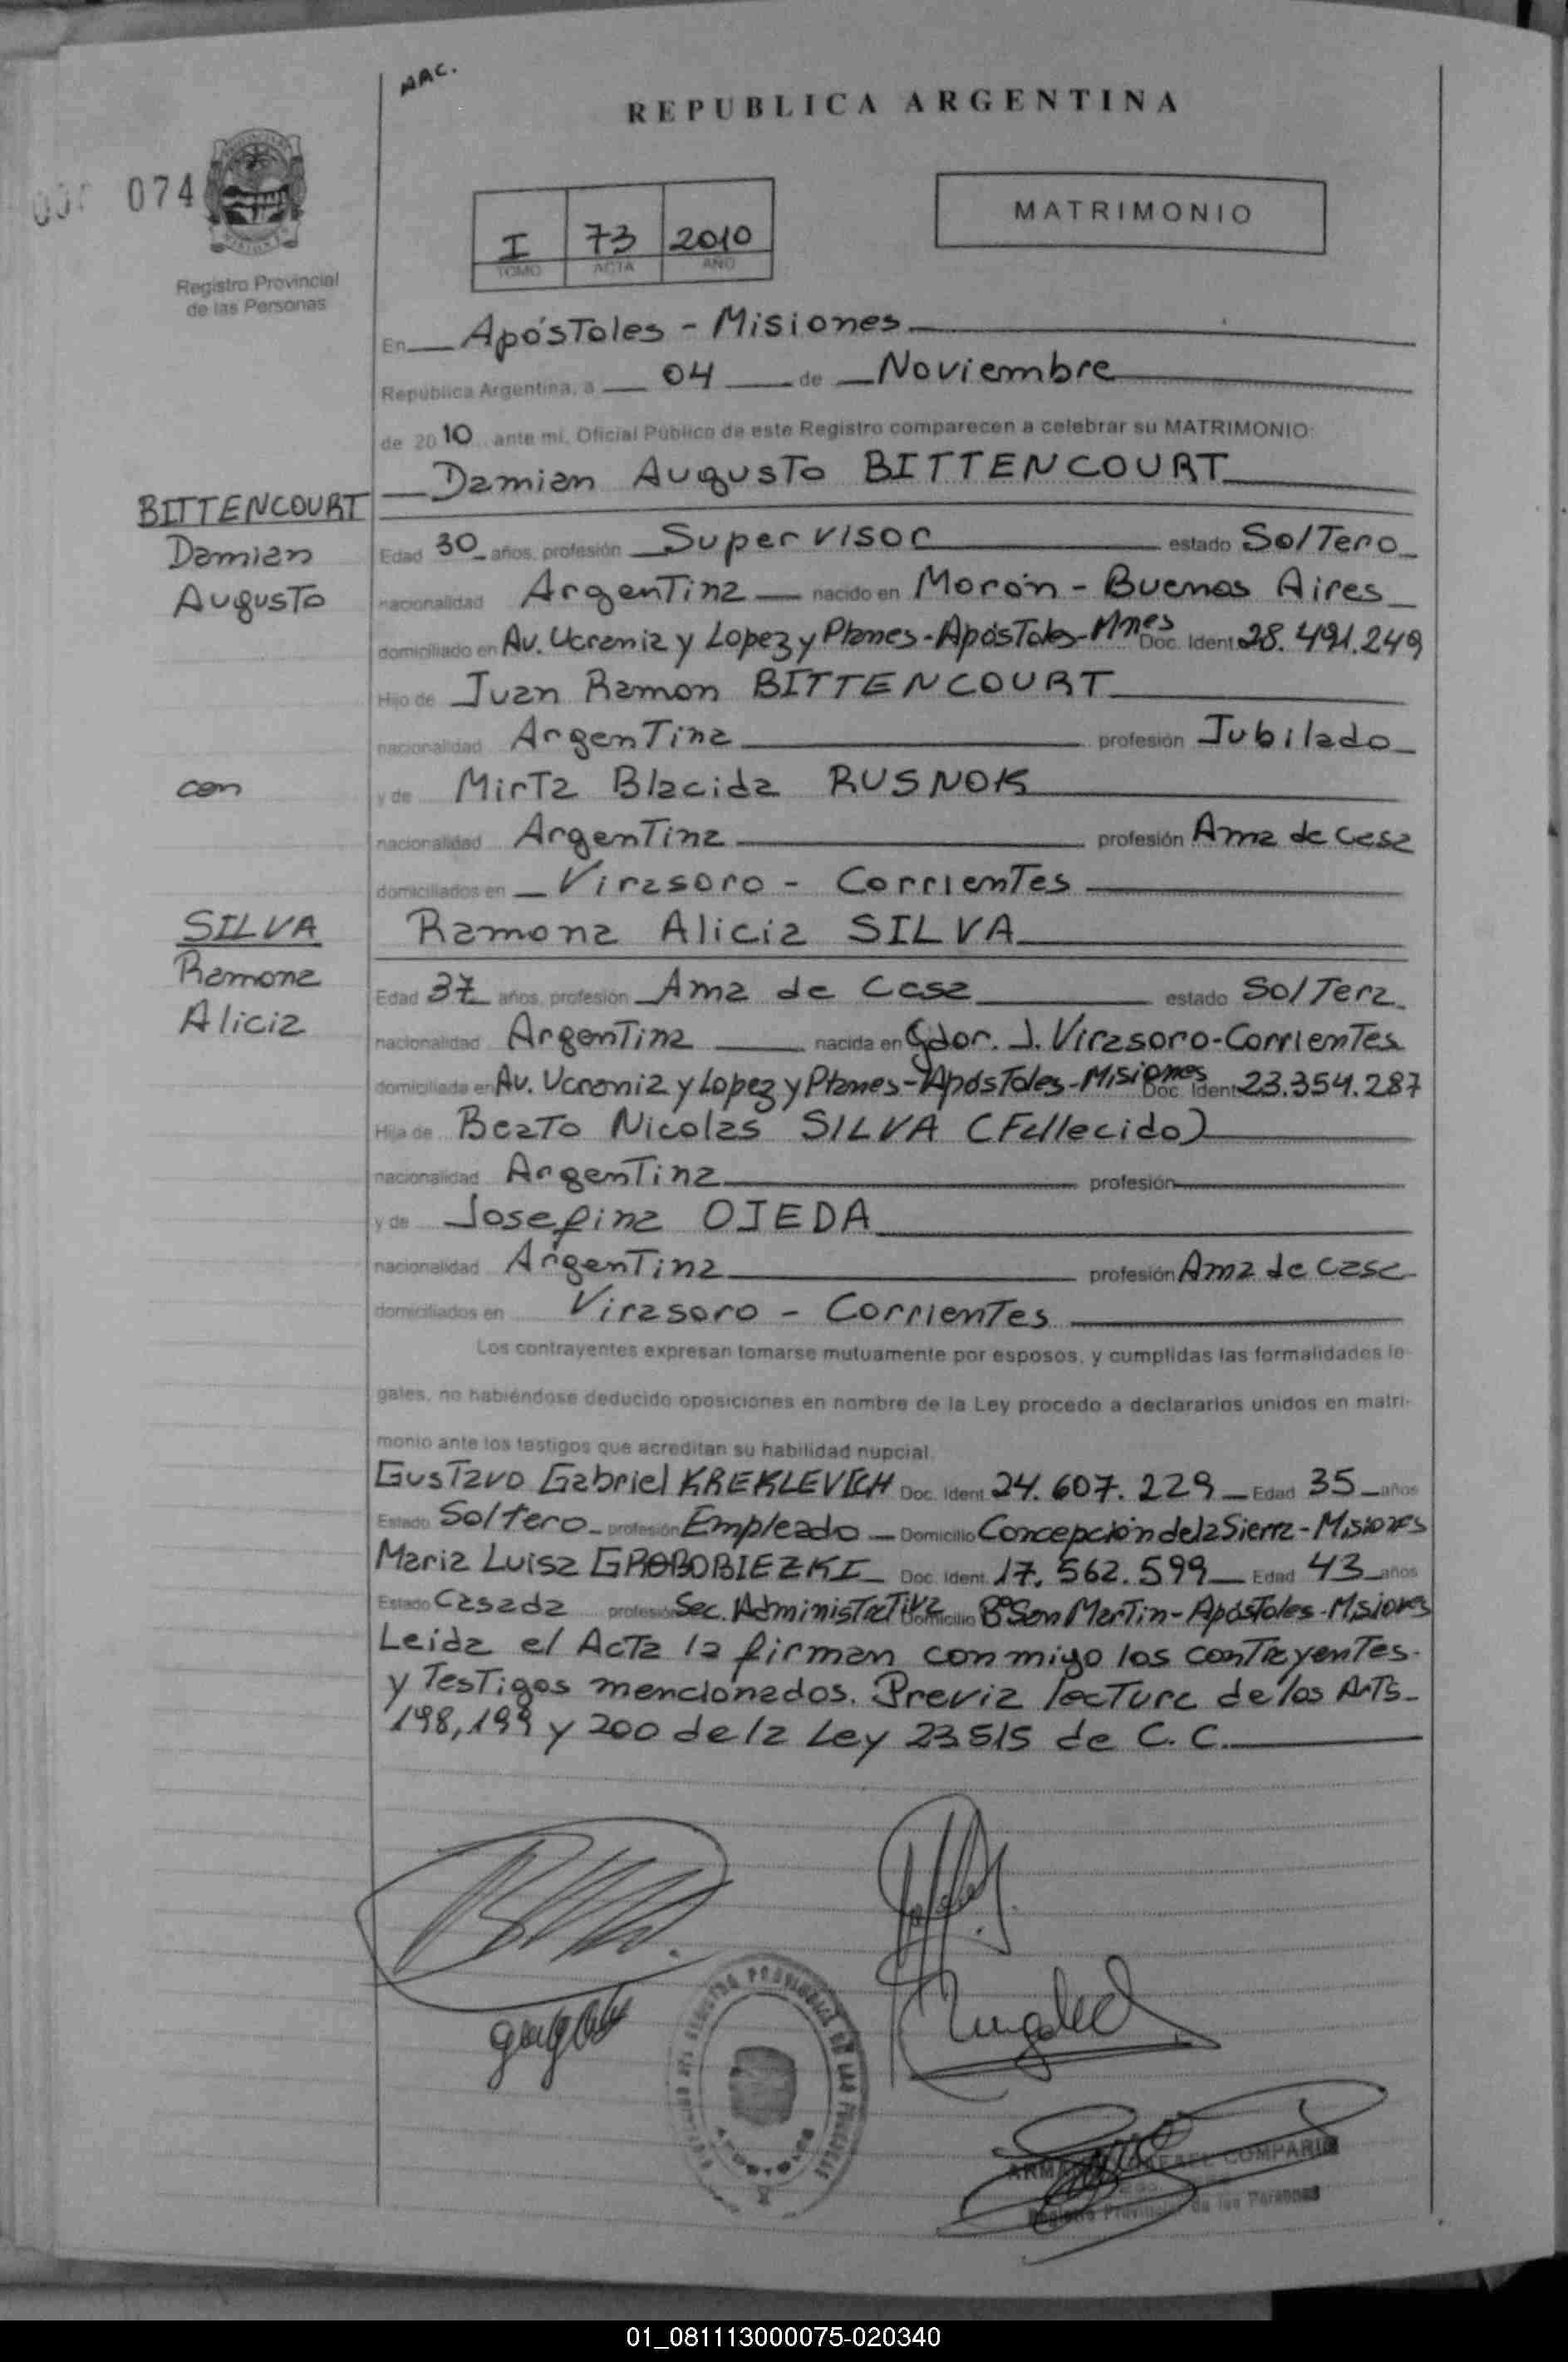 AAC.
REPUBLICA ARGENTINA
074
Registro Provincial
de las Personas
MATRIMONIO
I 73 2010
TOMO ACTA AÑO
En Apóstoles - Misiones
República Argentina, a 04 de Noviembre
de 2010 ante mi, Oficial Público de este Registro comparecen a celebrar su MATRIMONIO:
Damian Augusto BITTENCOURT
BITTENCOURT
Damian
Augusto
Edad 30 años, profesión Supervisor estado Soltero
nacionalidad Argentina nacido en Morón - Buenos Aires
domiciliado en Av. Ucrania y Lopez y Planes - Apóstoles - Mnes Doc. Ident 28.491.249
Hijo de Juan Ramon BITTENCOURT
nacionalidad Argentina profesión Jubilado
con
y de Mirta Blacida RUSNOK
nacionalidad Argentina profesión Ama de casa
domiciliados en Virasoro - Corrientes
SILVA
Ramona
Alicia
Ramona Alicia SILVA
Edad 37 años, profesión Ama de Casa estado Soltera
nacionalidad Argentina nacida en Gdor. J. Virasoro - Corrientes
domiciliada en Av. Ucrania y Lopez y Planes - Apóstoles - Misiones Doc. Ident 23.354.287
Hija de Beato Nicolas SILVA (Fallecido)
nacionalidad Argentina profesión
y de Josefina OJEDA
nacionalidad Argentina profesión Ama de casa
domiciliados en Virasoro - Corrientes
Los contrayentes expresan tomarse mutuamente por esposos, y cumplidas las formalidades le-
gales, no habiéndose deducido oposiciones en nombre de la Ley procedo a declararlos unidos en matri-
monio ante los testigos que acreditan su habilidad nupcial
Gustavo Gabriel KREKLEVICH Doc. Ident 24.607.229 Edad 35 años
Estado Soltero profesión Empleado Domicilio Concepción de la Sierra - Misiones
Maria Luisa Doc. Ident. 17.562.599 Edad 43 años
Estado Casada profesión Sec. Administrativa Domicilio B° San Martin - Apóstoles - Misiones
Leida el Acta la firman conmigo los contrayentes
y Testigos mencionados. Previa lectura de los Arts
198, 199 y 200 de la Ley 23515 de C. C.
REGISTRO PROVINCIAL DE LAS PERSONAS
APOSTOLES
RAFAEL COMPARIN
Registro Provincial de las Personas
01_081113000075-020340